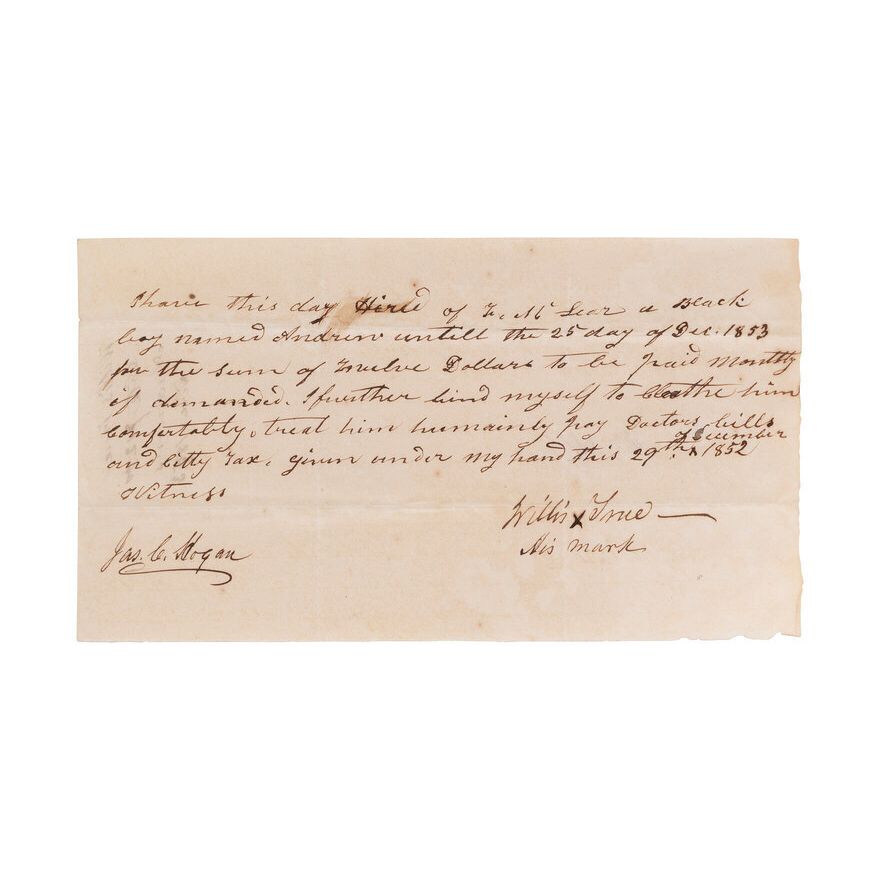 I have this day Hired of F. Mc Lear a Black
boy named Andrew untill the 25 day of Dec. 1853
for the sum of Twelve Dollars to be paid Monthly
if demanded. I further bind myself to Cloathe him
Comfortably, treat him humainly pay Doctors bills
and Citty Tax. given under my hand this 29th December 1852
Witness
Willis X True
His mark
Jas. C. Hogan